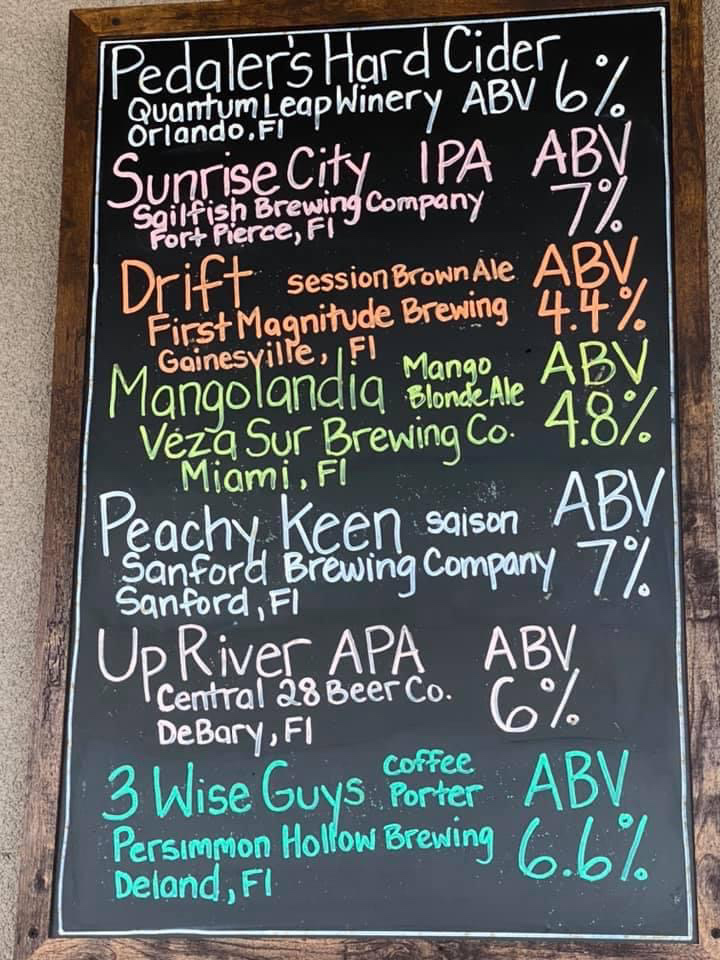 Pedaler's Hard Cider
Quantum Leap Winery ABV 6%
Orlando, Fl
Sunrise City IPA ABV
Sailfish Brewing Company 7%
Fort Pierce, Fl
Drift session Brown Ale ABV
First Magnitude Brewing 4.4%
Gainesville, Fl
Mangolandia Mango Blonde Ale ABV
Veza Sur Brewing Co. 4.8%
Miami, Fl
Peachy Keen saison ABV
Sanford Brewing Company 7%
Sanford, Fl
Up River APA ABV
Central 28 Beer Co. 6%
DeBary, Fl
3 Wise Guys coffee Porter ABV
Persimmon Hollow Brewing 6.6%
Deland, Fl